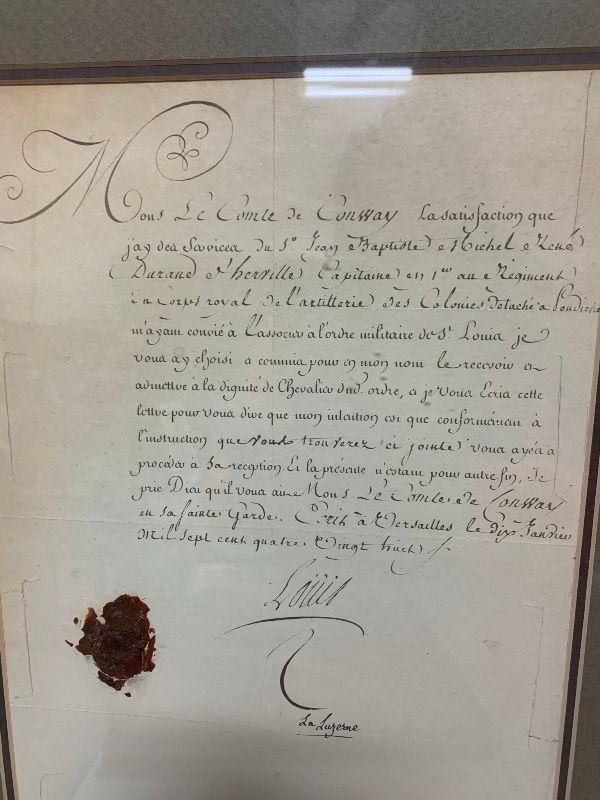 Mons Le Comte de Conway La satisfaction que
jay des Services du Sr Jean Baptiste Michel René
Durand d'herville Capitaine en 1er au Régiment
Du Corps royal de l'artillerie des Colonies détaché a Pondiche
m'ayant convié à l'associer à l'ordre militaire de St Louis je
vous ay choisi et commis pour en mon nom le recevoir et
admettre à la dignité de Chevalier dud. ordre, et je vous Ecris cette
lettre pour vous dire que mon intention est que conformément à
l'instruction que vous trouverez ci jointe vous ayés à
procéder à Sa reception. Et la présente n'estant pour autre fin, Je
prie Dieu qu'il vous ait Mons Le Comte de Conway
en sa sainte Garde. Ecrit à Versailles le dix Janvier
Mil sept cent quatre Vingt huit
Louis
La Luzerne